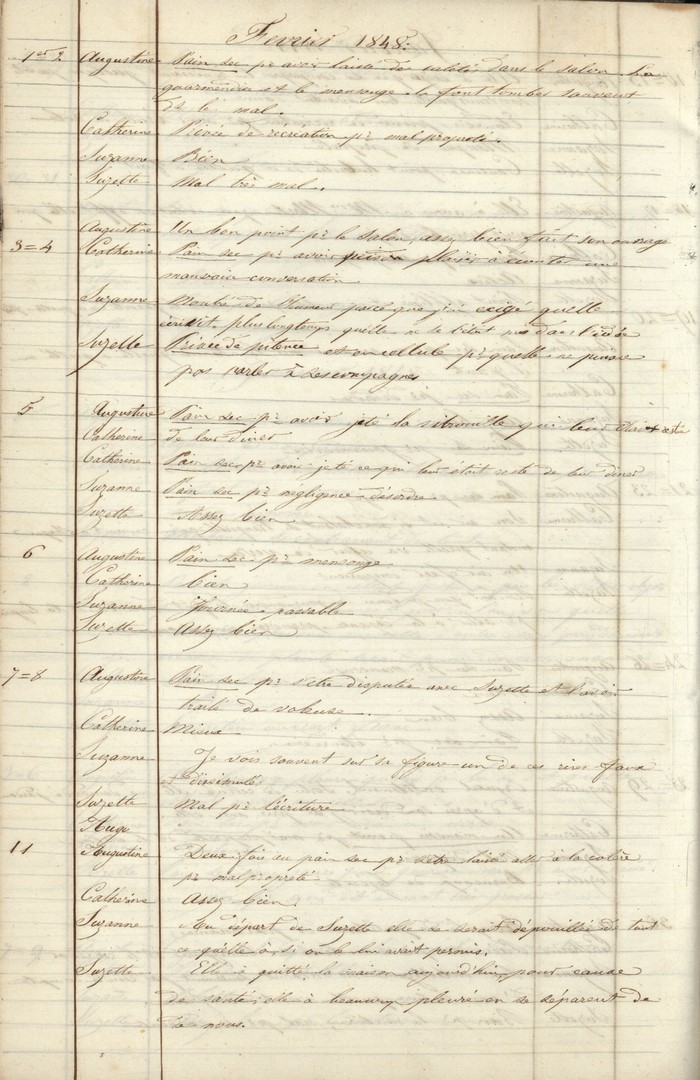 Fevrier 1848.
1er 2 Augustine Pain sec pr avoir laissé de saletés dans le salon. La
gourmandise et le mensonge la font tomber souvent
mal.
Catherine Privée de récréation pr malpropreté.
Suzanne Bien
Suzette Mal très mal.
Augustine Un bon point pr le salon, assez bien fait son ouvrage
3=4 Catherine Pain sec pr avoir plaisir à écouter une
mauvaise conversation
Suzanne Montré de l'humeur parce que j'ai exigé qu'elle
plus longtemps qu'elle ne se l'était mis dans l'idée
Suzette Privée de pitence et on collule pr quelle ne puisse
pas parler à ses compagnes
5 Augustine Pain sec pr avoir jeté la sitrouille qui leur reste
Catherine de leur diner
Catherine Pain sec pr avoir jeté ce qui leur était resté de leur diner
Suzanne Pain sec pr negligence désordre
Suzette Assez bien
6 Augustine Pain sec pr mensonge
Catherine bien
Suzanne Journée passable
Suzette Assez bien
7=8 Augustine Pain sec pr s'etre disputée avec Suzette et l'avoir
traité de voleuse.
Catherine Mieux
Suzanne Je vois souvent sur sa figure un de ces rires faux
et dissimulés
Suzette Mal pr l'écriture
Augu
11 Augustine Deux fois au pain sec pr s'etre laissé allé à la colère
pr malpropreté
Catherine Assez bien
Suzanne Au départ de Suzette elle se serait dépouillée de tout
ce qu'elle à, si on le lui avait permis.
Suzette Elle à quitté la maison aujourd'hui, pour cause
de santé, elle à beaucoup pleuré en se séparent de
nous.